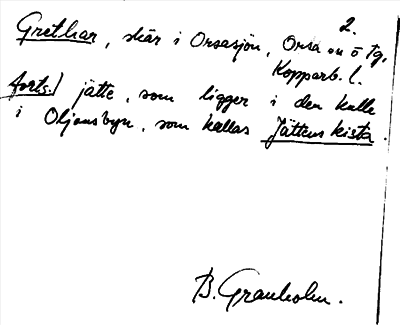 2.
Grethar, skär i Orsasjön, Orsa sn o tg,
Kopparb. l.
forts.) jätte, som ligger i den kulle
i Oljonsbyn, som kallas Jättens kista.
B. Granholm.